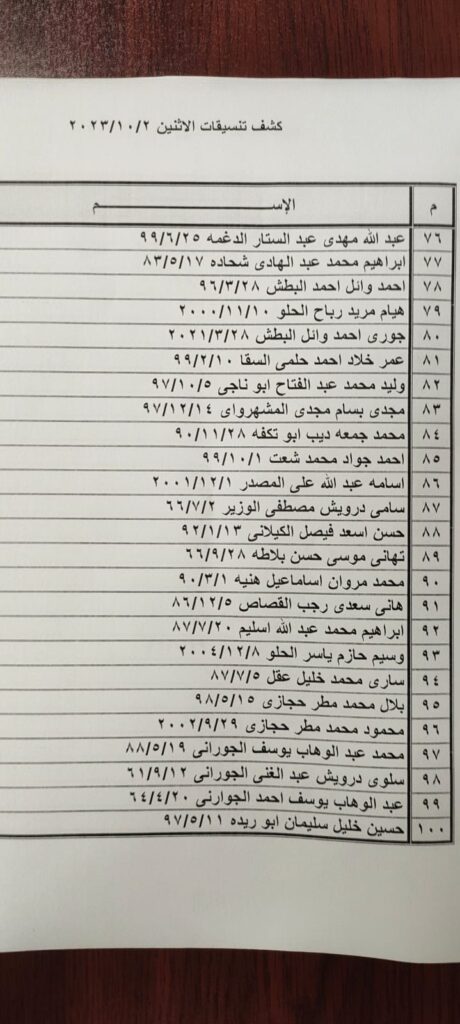 كشف تنسيقات الاثنين ٢٠٢٣/١٠/٢
م الإســـــــــــم
٧٦ عبد الله مهدى عبد الستار الدغمه ٩٩/٦/٢٥
٧٧ ابراهيم محمد عبد الهادى شحاده ٨٣/٥/١٧
٧٨ احمد وائل احمد البطش ٩٦/٣/٢٨
٧٩ هيام مريد رباح الحلو ٢٠٠٠/١١/١٠
٨٠ جورى احمد وائل البطش ٢٠٢١/٣/٢٨
٨١ عمر خلاد احمد حلمى السقا ٩٩/٢/١٠
٨٢ وليد محمد عبد الفتاح ابو ناجى ٩٧/١٠/٥
٨٣ مجدى بسام مجدى المشهرواى ٩٧/١٢/١٤
٨٤ محمد جمعه ديب ابو تكفه ٩٠/١١/٢٨
٨٥ احمد جواد محمد شعت ٩٩/١٠/١
٨٦ اسامه عبد الله على المصدر ٢٠٠١/١٢/١
٨٧ سامى درويش مصطفى الوزير ٦٦/٧/٢
٨٨ حسن اسعد فيصل الكيلانى ٩٢/١/١٣
٨٩ تهانى موسى حسن بلاطه ٦٦/٩/٢٨
٩٠ محمد مروان اساماعيل هنيه ٩٠/٣/١
٩١ هانى سعدى رجب القصاص ٨٦/١٢/٥
٩٢ ابراهيم محمد عبد الله اسليم ٨٧/٧/٢٠
٩٣ وسيم حازم ياسر الحلو ٢٠٠٤/١٢/٨
٩٤ سارى محمد خليل عقل ٨٧/٧/٥
٩٥ بلال محمد مطر حجازى ٩٨/٥/١٥
٩٦ محمود محمد مطر حجازى ٢٠٠٢/٩/٢٩
٩٧ محمد عبد الوهاب يوسف الجورانى ٨٨/٥/١٩
٩٨ سلوى درويش عبد الغنى الجورانى ٦١/٩/١٢
٩٩ عبد الوهاب يوسف احمد الجوارنى ٦٤/٤/٢٠
١٠٠ حسين خليل سليمان ابو ريده ٩٧/٥/١١